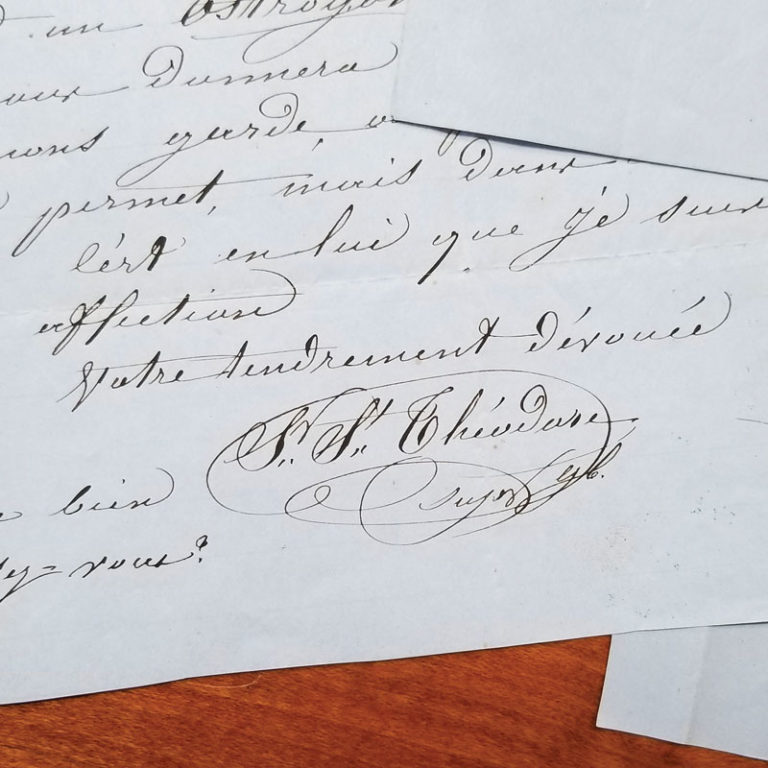 un
vous donnera
garde,
permet, mais dans
c'est en lui que je suis
affection
Votre tendrement dévouée
Sr. St. Théodore
supre gle.
bien
vous?